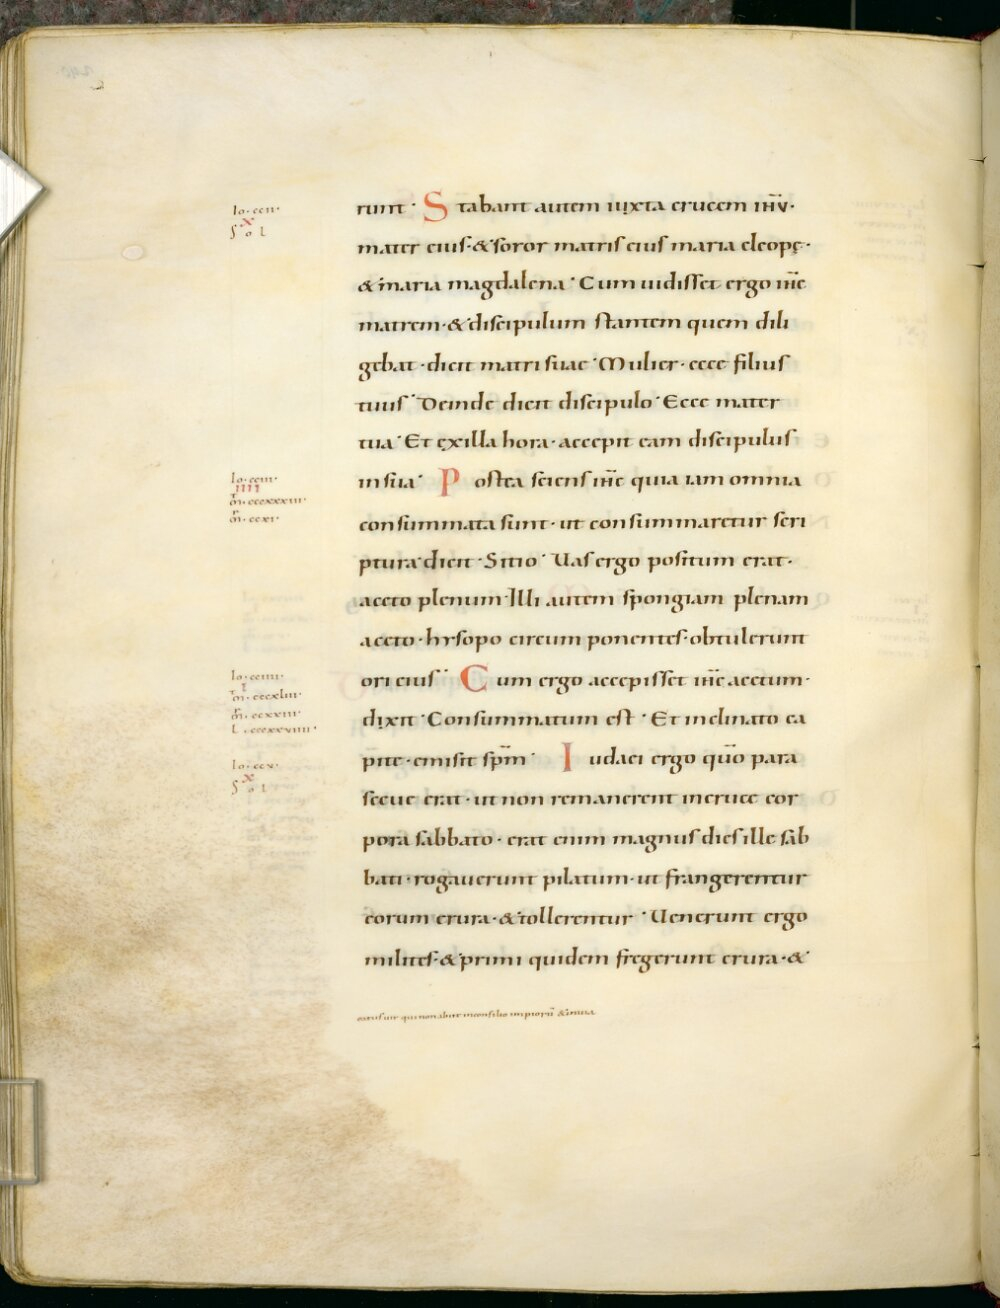 runt · Stabant autem iuxta crucem ih̄v·
mater eius·&soror matris eius maria cleopę·
&maria magdalena · Cum uidisset ergo ih̄c
matrem·&discipulum stantem quem dili
gebat·dicit matri suae · Mulier·ecce filius
tuus · Deinde dicit discipulo · Ecce mater
tua · Et ęxilla hora·accepit eam discipulus
insua · Postea sciens ih̄c quia iam omnia
consummata sunt·ut consummaretur scri
ptura·dicit·Sitio · Uas ergo positum erat·
aceto plenum·Illi autem spongiam plenam
aceto·hysopo circum ponentes·obtulerunt
ori eius · Cum ergo accepisset ih̄c acetum·
dixit · Consummatum est · Et inclinato ca
pite·emisit sp̄m · Iudaei ergo quō para
sceue erat·ut non remanerent incruce cor
pora sabbato·erat enim magnus dies ille sab
bati·rogauerunt pilatum·ut frangerentur
eorum crura·&tollerentur · Uenerunt ergo
milites·&primi quidem fregerunt crura·&
Io·ccii·
x
Sol
Io·cciii·
IIII
Io·cciiii·
I
Io·ccv·
x
Sol
eatusuir quinonabiit inconsilio impiorū &inuia